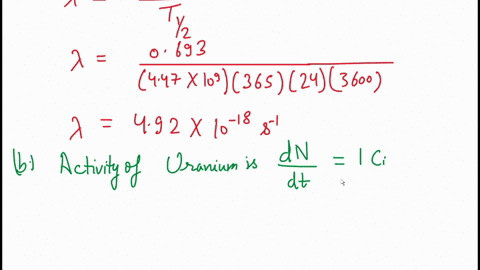 λ =
T½
λ = 0.693 / (4.47 × 10⁹)(365)(24)(3600)
λ = 4.92 × 10⁻¹⁸ s⁻¹
(b:) Activity of Uranium is dN/dt = 1 Ci